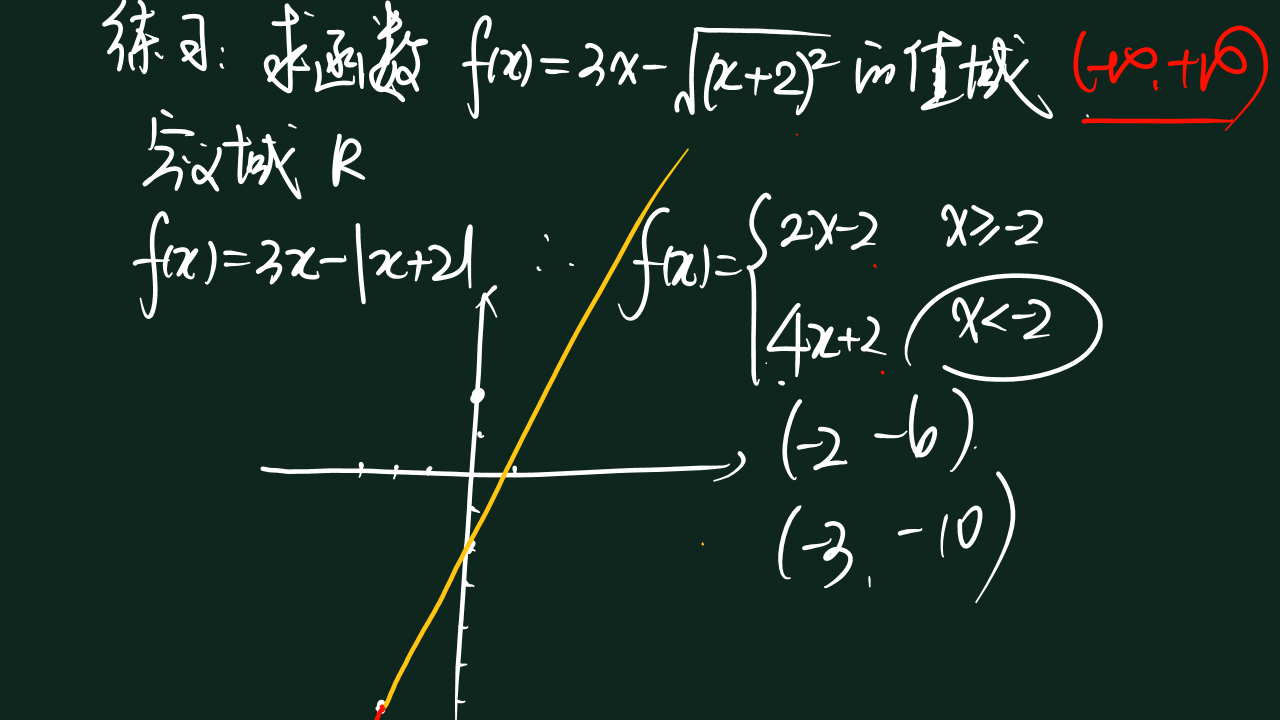 练习: 求函数 f(x)=3x-√(x+2)² 的值域 (-∞,+∞)
定义域 R
f(x)=3x-|x+2| ∴ f(x)={2x-2 x≥-2
4x+2 x<-2
(-2 -6)
(-3, -10)